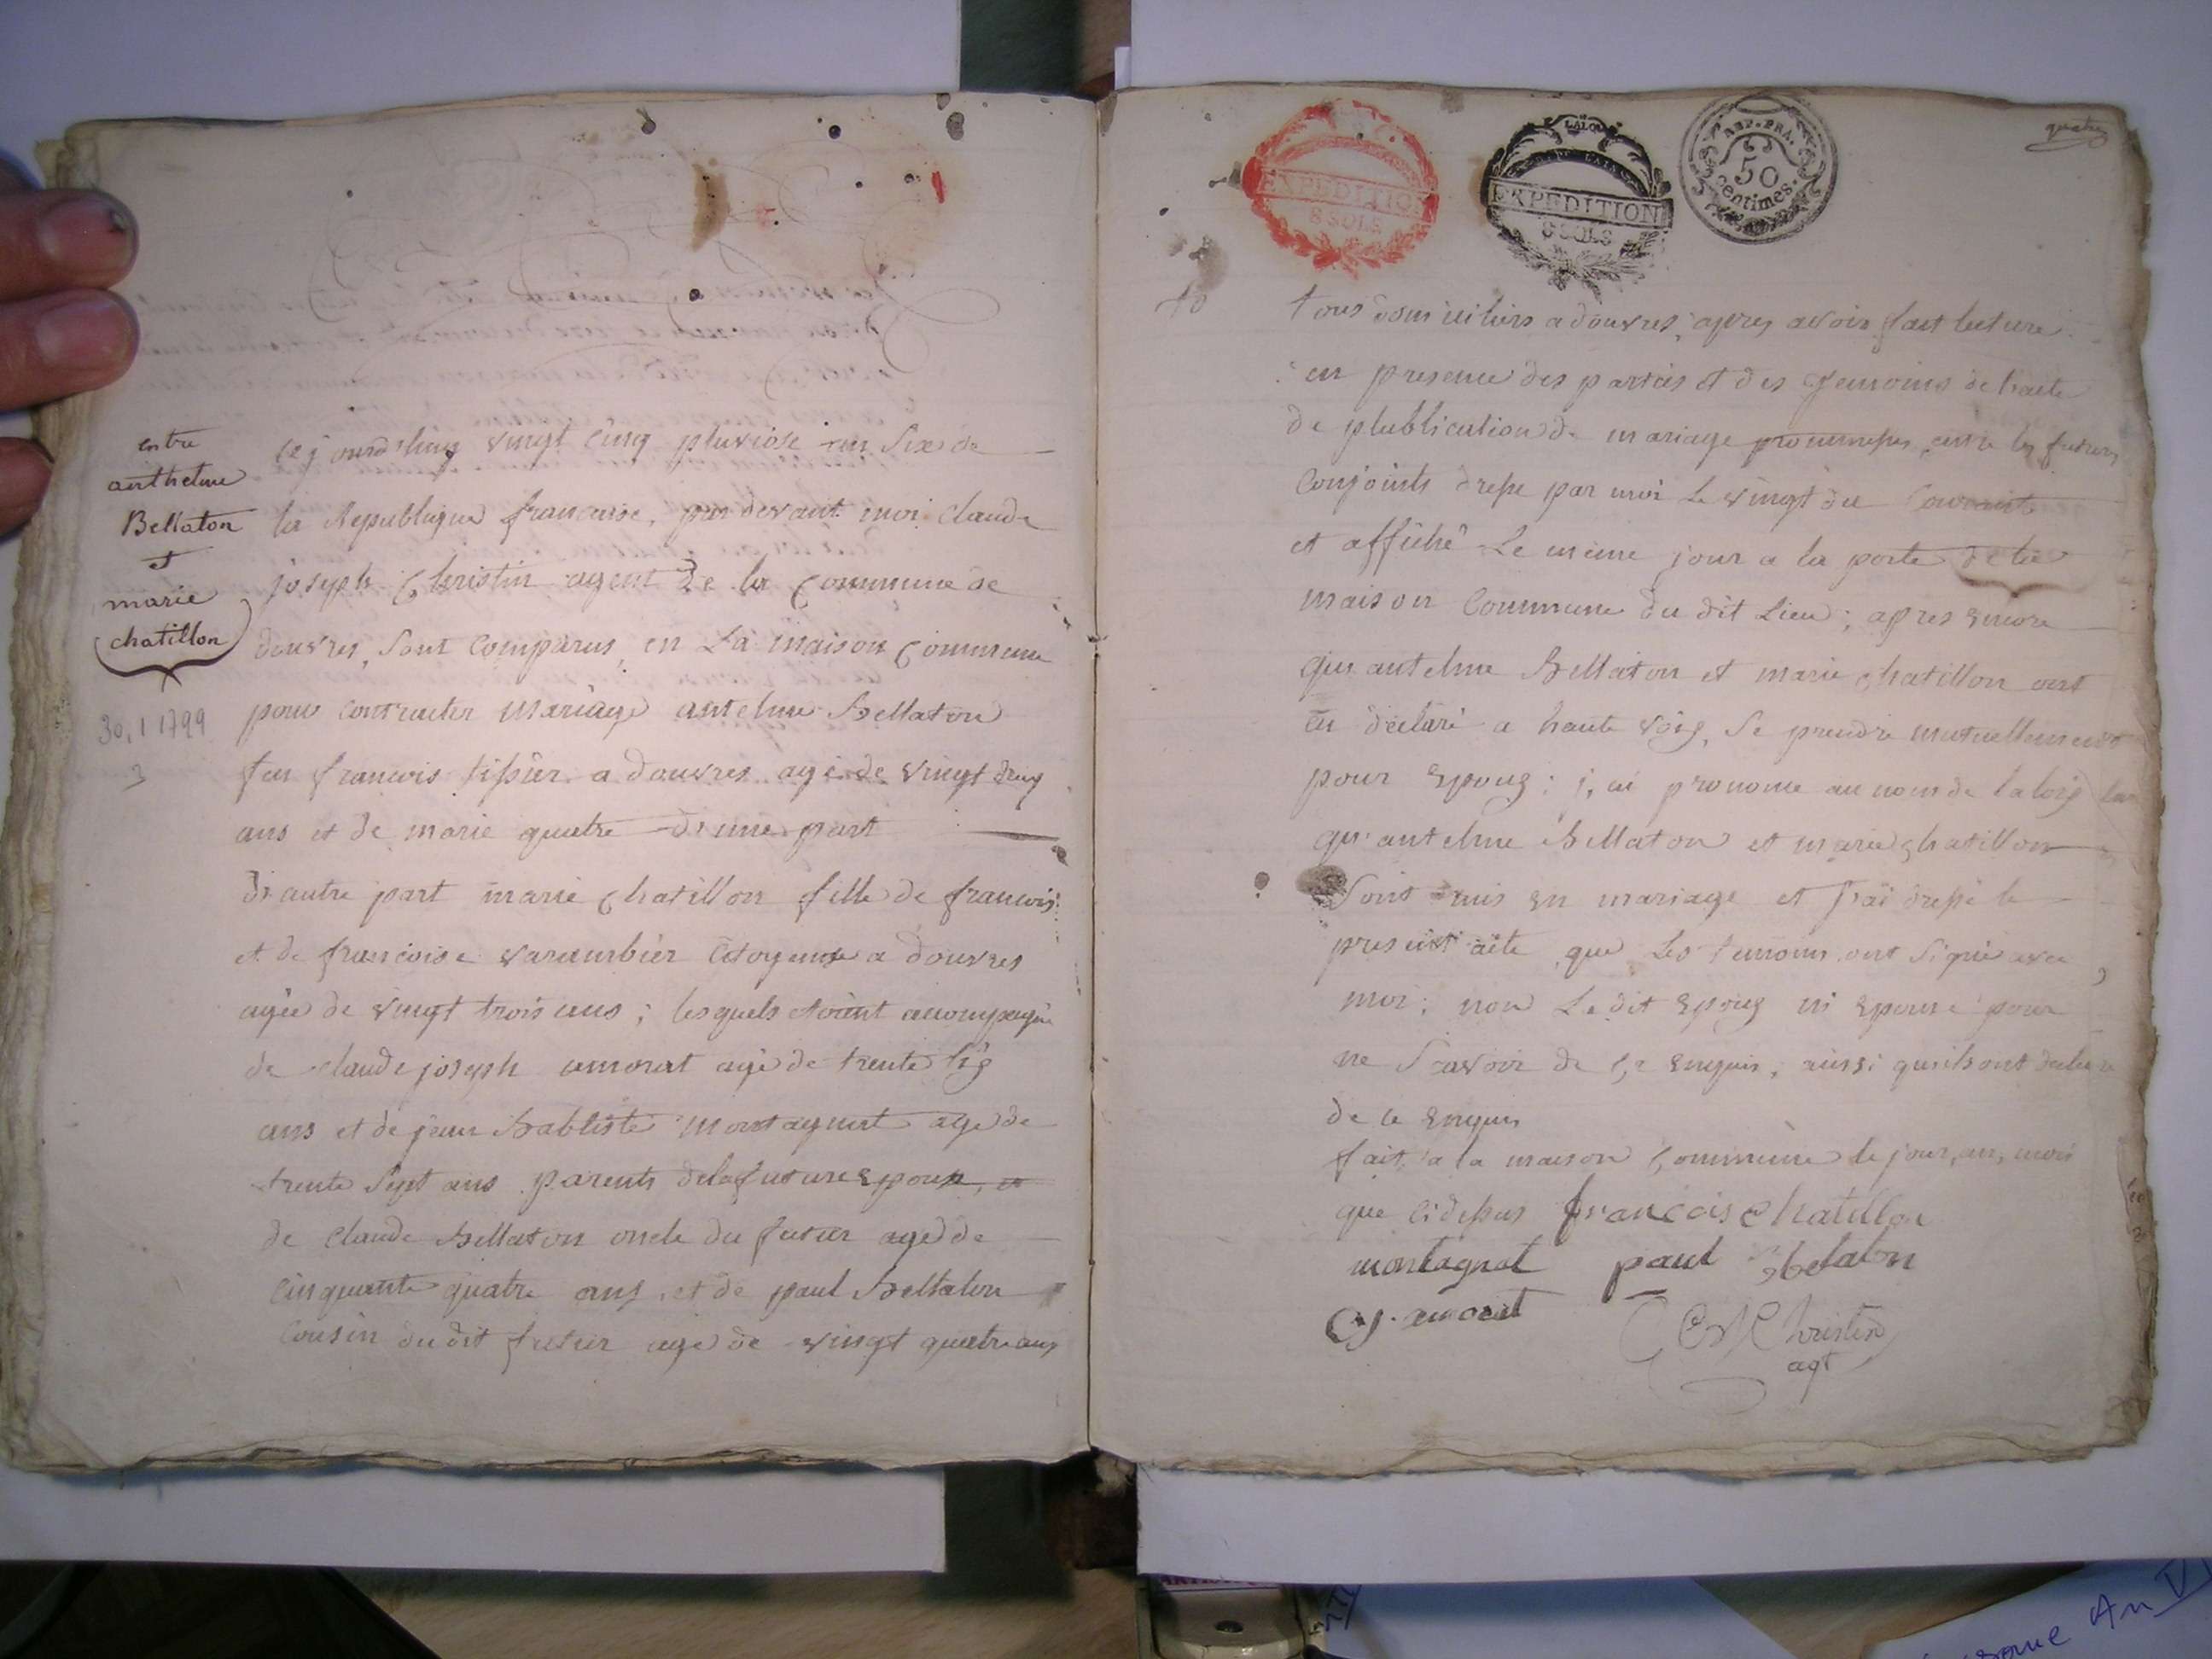 entre
anthelme
Bellaton
et
marie
chatillon
30, 1 1799
3
cejourdhuy vingt cinq pluviose an Six de
la Republique francaise, par devant moi claude
joseph Christin agent de la Commune de
douvres, Sont Comparus, en La maison Commune
pour contracter mariage antelme Bellaton
feu francois tissier a douvres agé de vingt deux
ans et de marie quatre d'une part
d'autre part marie Chatillon fille de francois
et de francoise varambier Citoyenne a douvres
agée de vingt trois ans ; lesquels etoient accompagné
de claude joseph amorat agé de trente six
ans et de jean Babtiste montagnat agé de
trente Sept ans parents de la future Epouse, et
de claude Bellaton oncle du futur agé de
Cinquante quatre ans, et de paul Bellaton
Cousin du dit futur agé de vingt quatre ans
quatre
EXPEDITION
8 SOLS
EXPEDITION
8 SOLS
REP. FRA.
50
centimes.
tous domiciliers a douvres, apres avoir fait lecture
en presence des parties et des temoins de l'acte
de plublication de mariage promesses, entre les futurs
Conjoints dressé par moi Le vingt du Courant
et affiché Le meme jour a la porte de la
maison Commune du dit Lieu ; apres Encore
que antelme Bellaton et marie chatillon ont
eu declaré a haute voix, Se prendre mutuellement
pour Epoux ; j'ai prononcé au nom de la loix
qu'antelme Bellaton et marie chatillon
Sont unis En mariage et j'ai dressé le
present acte que Les temoins ont Signé avec
moi ; non Le dit Epoux ni Epouse pour
ne Scavoir de Ce Enquis, ainsi qu'ils ont declaré
de ce Enquis
fait a la maison Commune le jour, an, mois
que ci dessus francois chatillon
montagnat paul belaton
C J. amorat
Christin
agt
An V